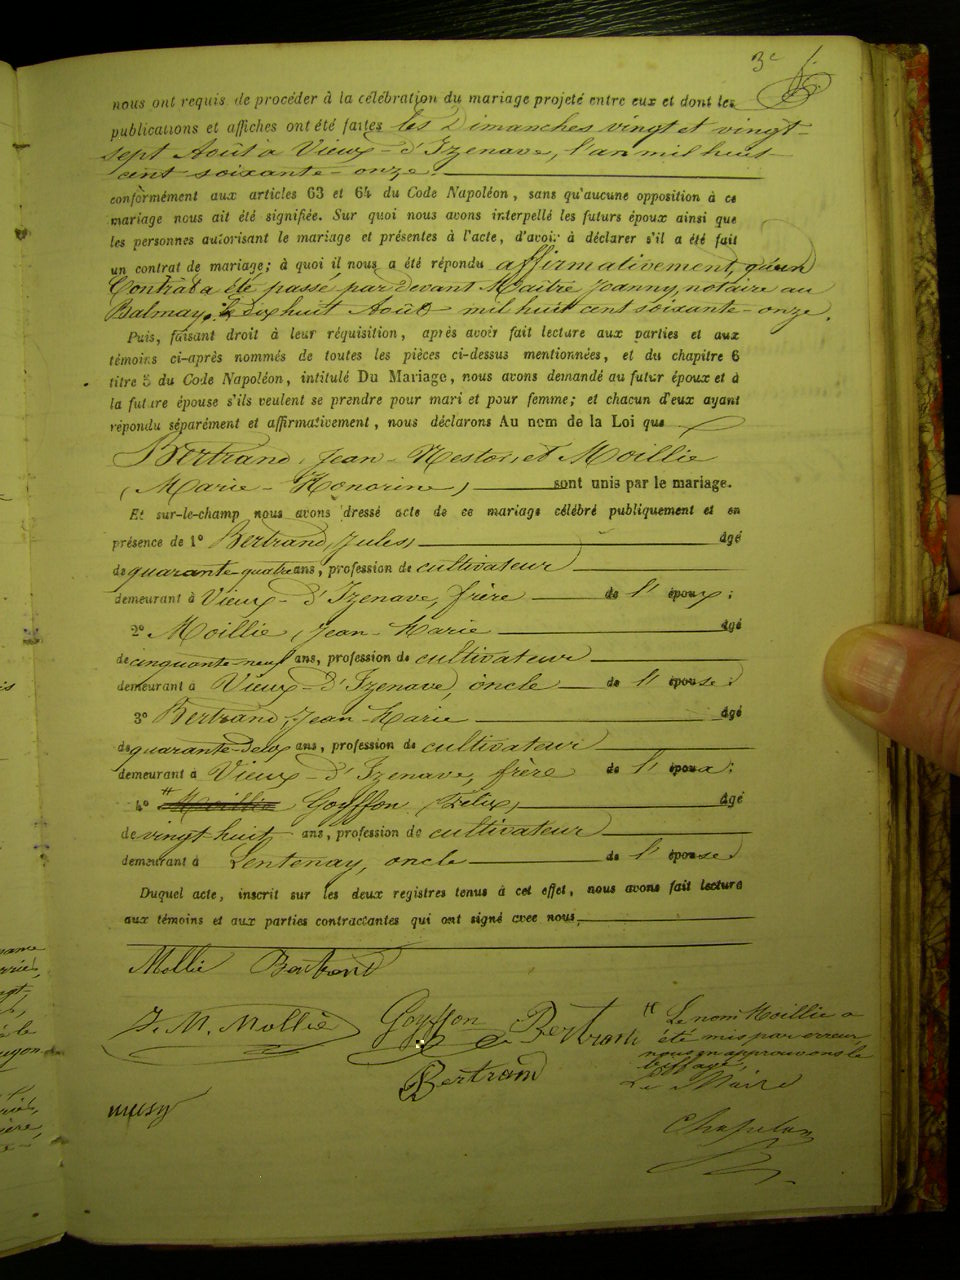 3e
nous ont requis de procéder à la célébration du mariage projeté entre eux et dont les
publications et affiches ont été faites les Dimanches vingt et vingt-
sept Août à Vieux-d'Izenave, l'an mil huit
cent soixante-onze.
conformément aux articles 63 et 64 du Code Napoléon, sans qu'aucune opposition à ce
mariage nous ait été signifiée. Sur quoi nous avons interpellé les futurs époux ainsi que
les personnes autorisant le mariage et présentes à l'acte, d'avoir à déclarer s'il a été fait
un contrat de mariage; à quoi il nous a été répondu affirmativement, qu'un
Contrat a été passé par devant Maître Joanny, notaire au
Balmay, le dix huit Août mil huit cent soixante-onze.
Puis, faisant droit à leur réquisition, après avoir fait lecture aux parties et aux
témoins ci-après nommés de toutes les pièces ci-dessus mentionnées, et du chapitre 6
titre 5 du Code Napoléon, intitulé Du Mariage, nous avons demandé au futur époux et à
la future épouse s'ils veulent se prendre pour mari et pour femme; et chacun d'eux ayant
répondu séparément et affirmativement, nous déclarons Au nom de la Loi que
Bertrand, Jean-Nestor, et Moillie
(Marie-Honorine) sont unis par le mariage.
Et sur-le-champ nous avons dressé acte de ce mariage célébré publiquement et en
présence de 1° Bertrand, Jules, âgé
de quarante-quatre ans, profession de cultivateur
demeurant à Vieux-d'Izenave, frère de l'époux;
2° Moillie, Jean-Marie âgé
de cinquante-neuf ans, profession de cultivateur
demeurant à Vieux-d'Izenave, oncle de l'épouse;
3° Bertrand, Jean-Marie âgé
de quarante-deux ans, profession de cultivateur
demeurant à Vieux-d'Izenave, frère de l'époux;
4° # Moillie Goyffon, Félix, âgé
de vingt huit ans, profession de cultivateur
demeurant à Lentenay, oncle de l'épouse
Duquel acte, inscrit sur les deux registres tenus à cet effet, nous avons fait lecture
aux témoins et aux parties contractantes qui ont signé avec nous,
Mollie Bertrand
J. M. Mollie Goyffon Bertrand
Bertrand
# Le nom Moillie a
été mis par erreur,
nous en approuvons le
biffage,
Le Maire